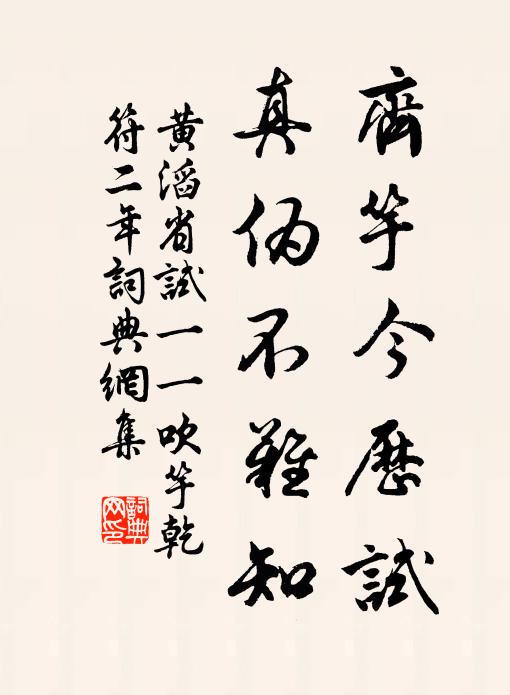 齊竽今歷試
真偽不難知
黃滔省試一一吹竽乾
符二年詞典網集
詞典网印